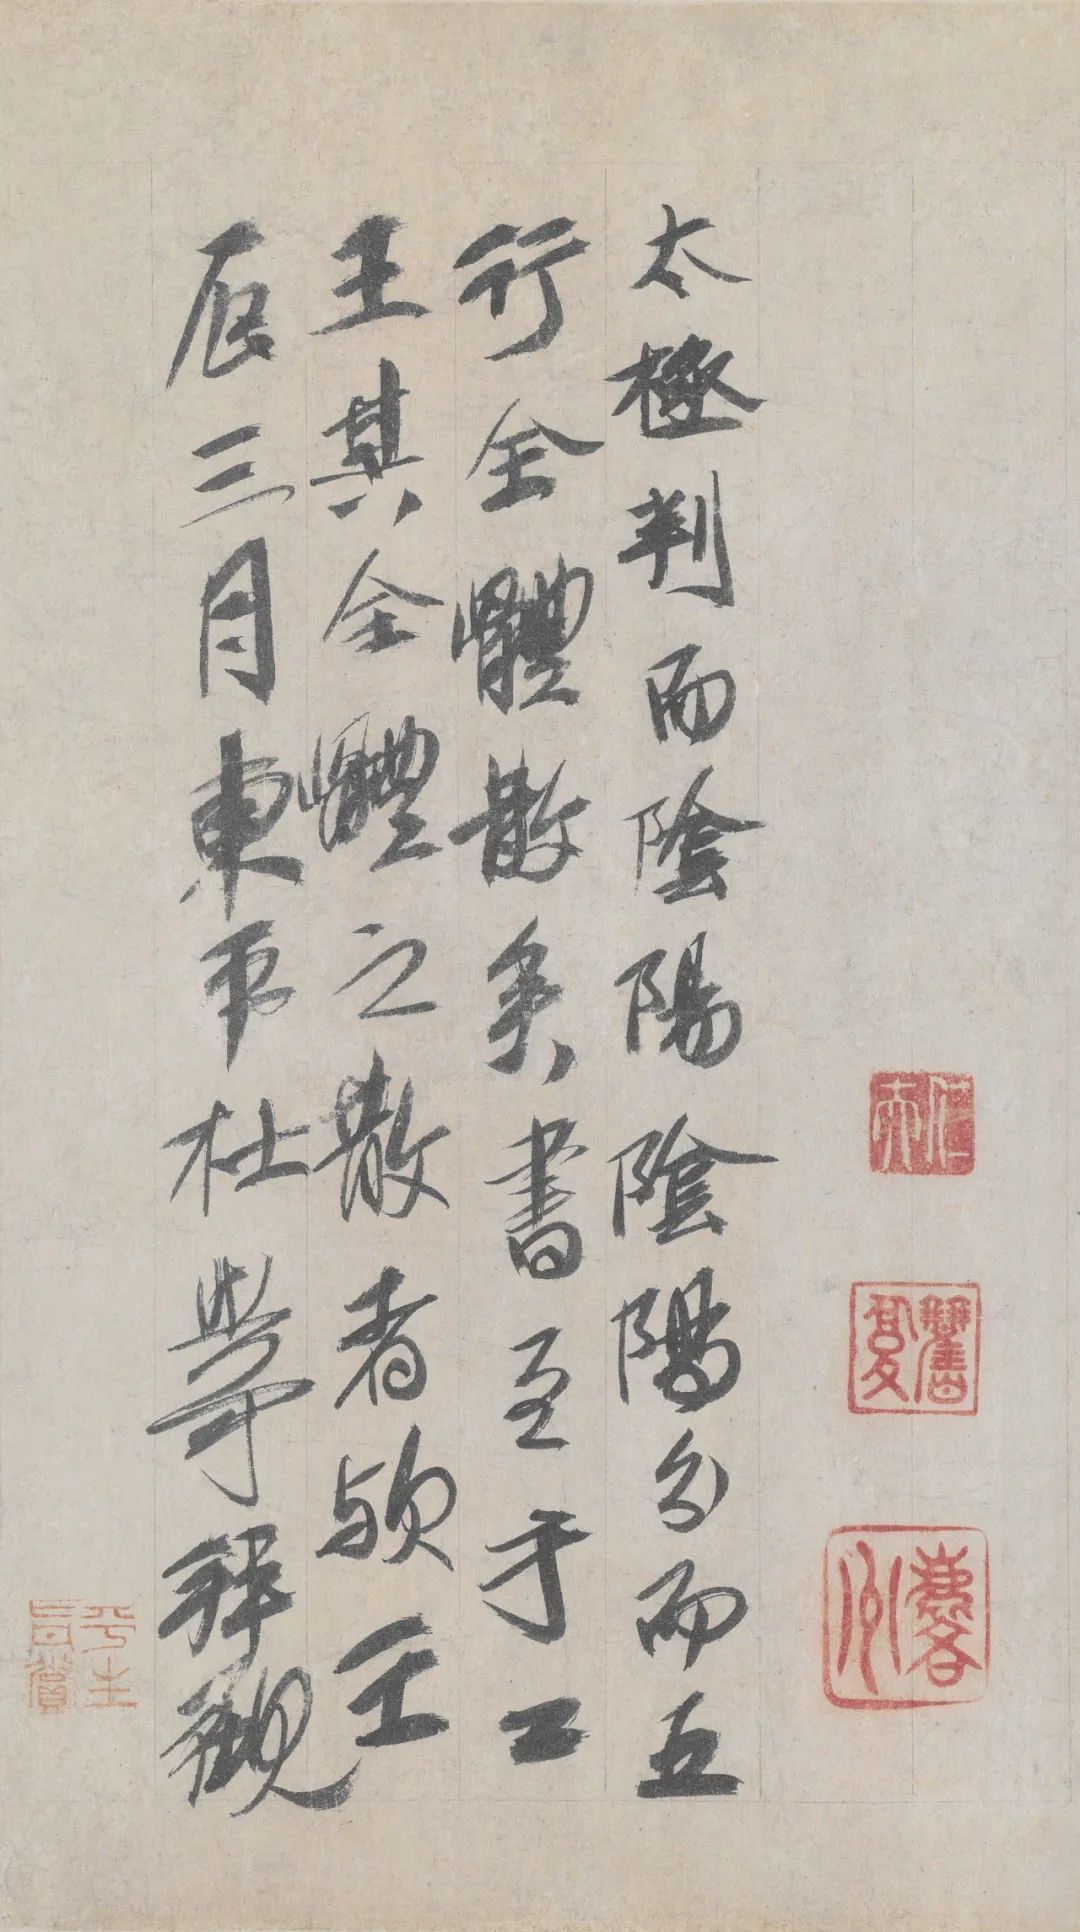 太極判而陰陽陰陽分而五
行全體散矣書至于二
王其全體之散者歟壬
辰三月東平杜拜觀
平生真賞